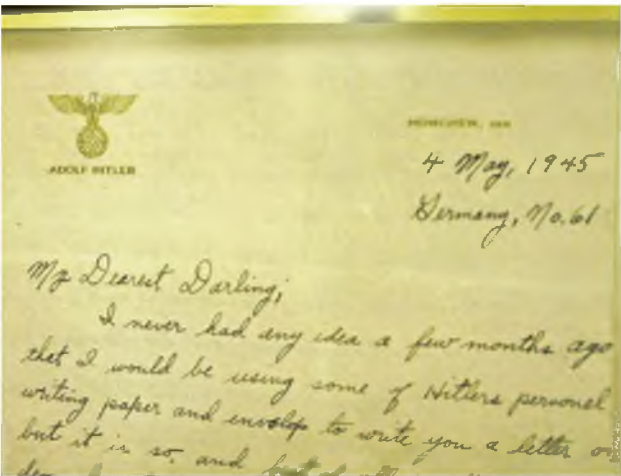 ADOLF HITLER
MÜNCHEN, DEN
4 May, 1945
Germany, No. 61
My Dearest Darling;
I never had any idea a few months ago
that I would be using some of Hitlers personal
writing paper and envelop to write you a letter on
but it is so, and